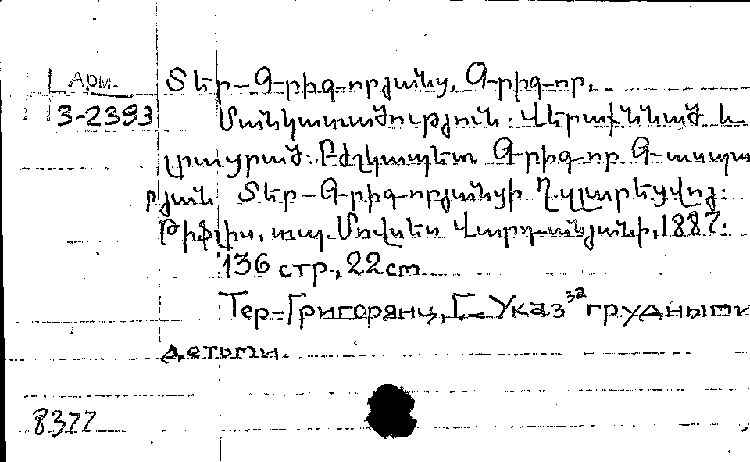 Арм.
3-2393
Տեր-Գրիգորյանց, Գրիգոր.
Մանկատածություն: Վերաքննած և
լրացրած: Բժշկապետ Գրիգոր Գասպա
րյան Տեր-Գրիգորյանցի
Թիֆլիս, տպ. Մովսես Վարդանյանի, 1887:
136 стр., 22cm
Тер-Григорянц, Г. Указ за грудными
детьми.
8377